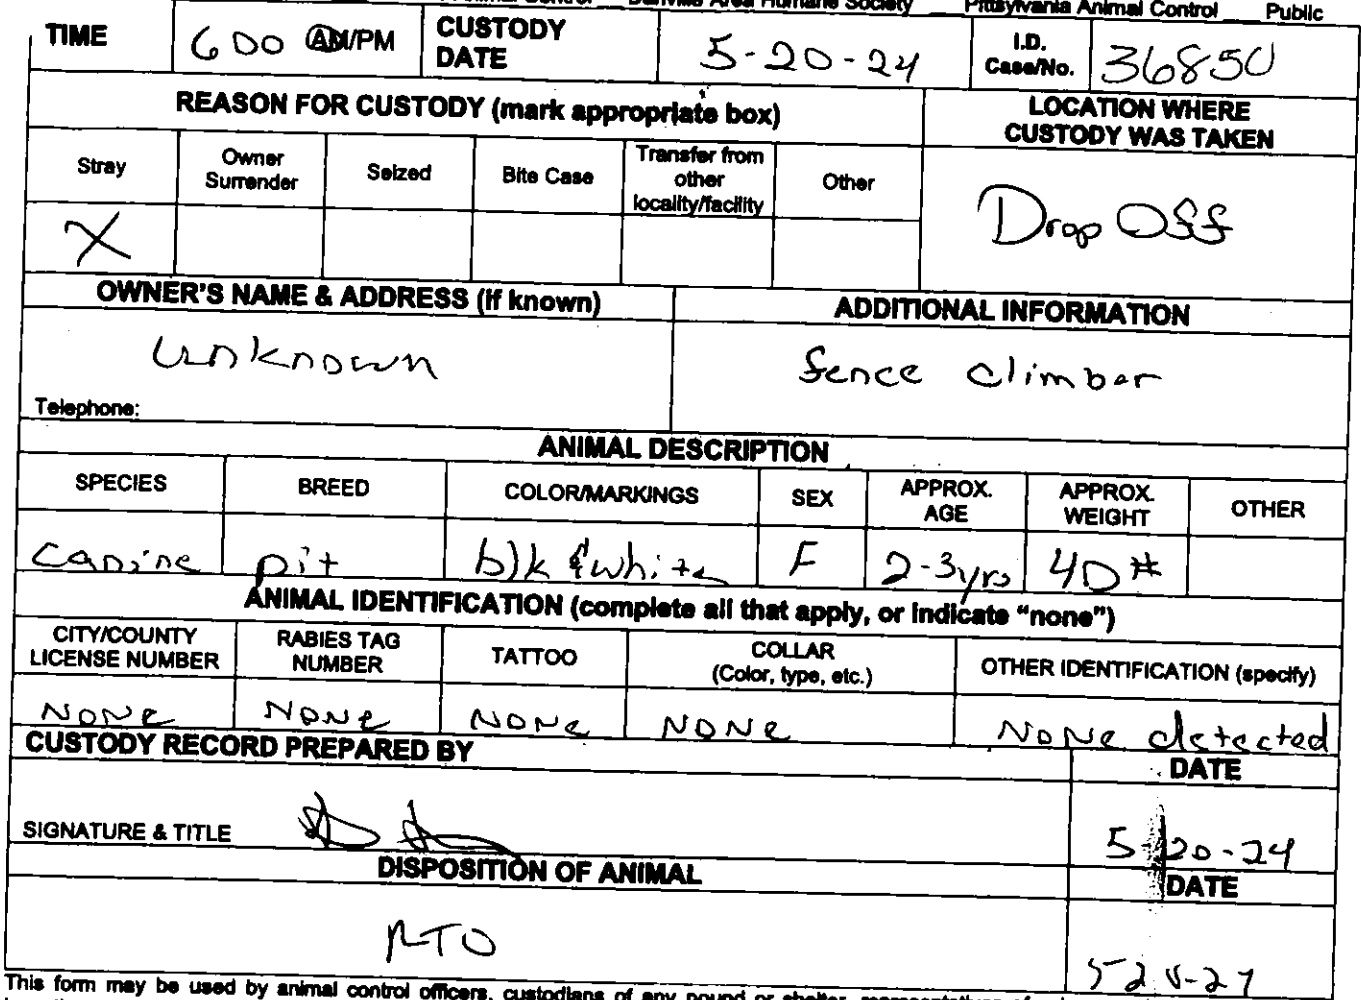 Animal Control Danville Area Humane Society Pittsylvania Animal Control Public
TIME 600 AM/PM CUSTODY DATE 5-20-24 I.D. Case/No. 36850
REASON FOR CUSTODY (mark appropriate box) LOCATION WHERE CUSTODY WAS TAKEN
Stray Owner Surrender Seized Bite Case Transfer from other locality/facility Other
X Drop Off
OWNER'S NAME & ADDRESS (if known) ADDITIONAL INFORMATION
unknown fence climber
Telephone:
ANIMAL DESCRIPTION
SPECIES BREED COLOR/MARKINGS SEX APPROX. AGE APPROX. WEIGHT OTHER
canine pit blk & white F 2-3yrs 40#
ANIMAL IDENTIFICATION (complete all that apply, or indicate "none")
CITY/COUNTY LICENSE NUMBER RABIES TAG NUMBER TATTOO COLLAR (Color, type, etc.) OTHER IDENTIFICATION (specify)
None None None None None detected
CUSTODY RECORD PREPARED BY DATE
SIGNATURE & TITLE 5-20-24
DISPOSITION OF ANIMAL DATE
RTO
This form may be used by animal control officers, custodians of any pound or shelter,